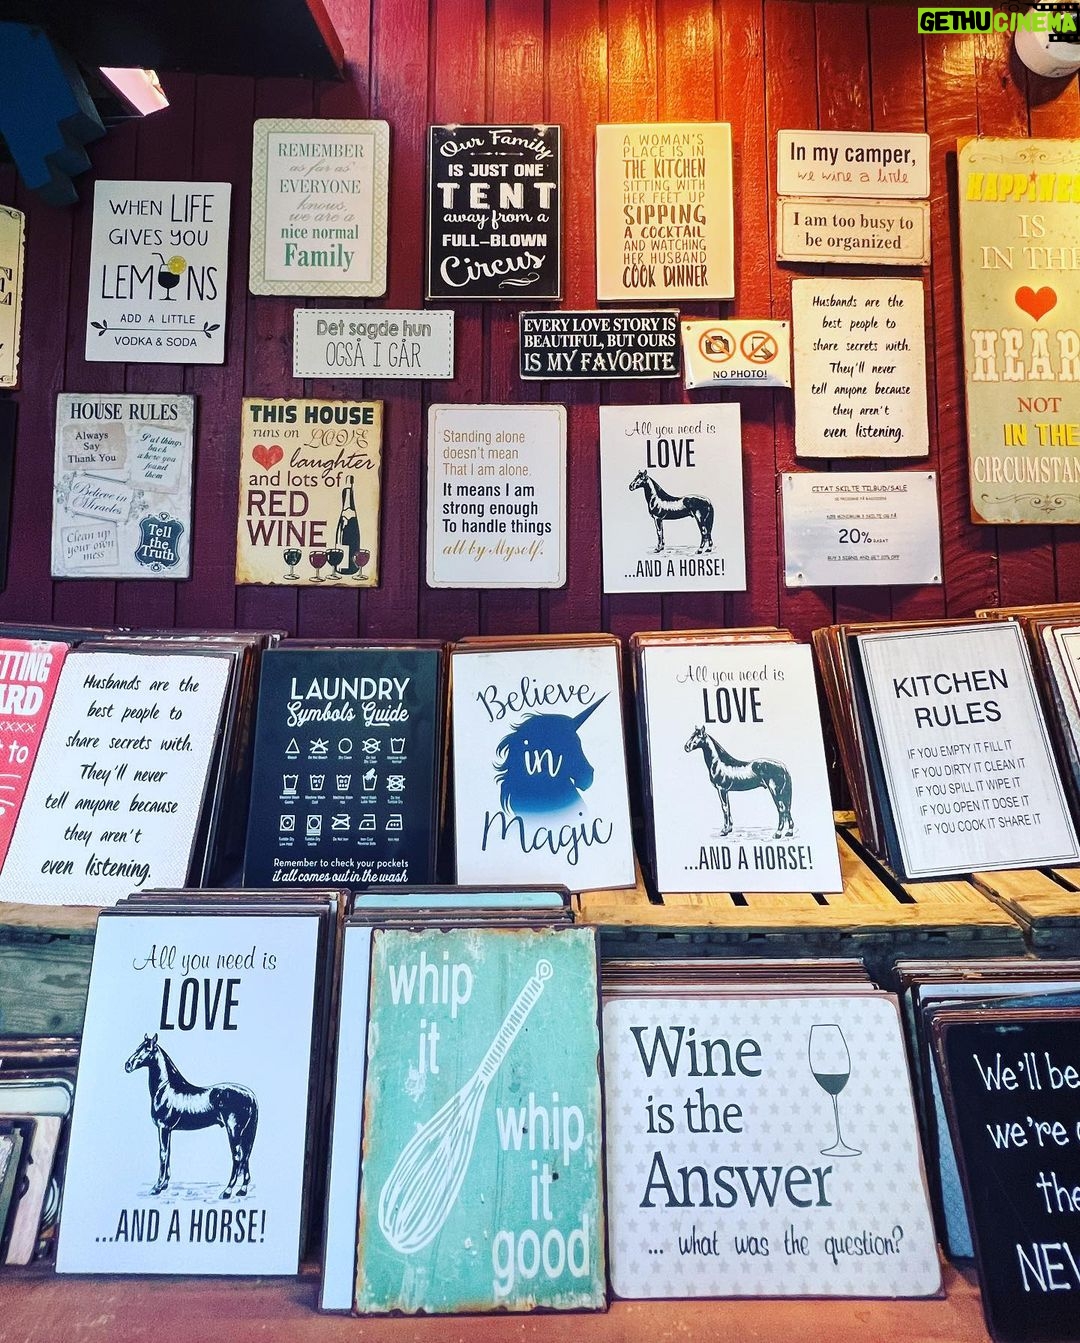 GETHUCINEMA
WHEN LIFE
GIVES YOU
LEMONS
ADD A LITTLE
VODKA & SODA
REMEMBER
as far as
EVERYONE
knows,
we are a
nice normal
Family
Our Family
IS JUST ONE
TENT
away from a
FULL-BLOWN
Circus
A WOMAN'S
PLACE IS IN
THE KITCHEN
SITTING WITH
HER FEET UP
SIPPING
A COCKTAIL
AND WATCHING
HER HUSBAND
COOK DINNER
In my camper,
we wine a little
I am too busy to
be organized
HAPPINES
IS
IN THE
HEAR
NOT
IN THE
CIRCUMSTAN
Det sagde hun
OGSÅ I GÅR
EVERY LOVE STORY IS
BEAUTIFUL, BUT OURS
IS MY FAVORITE
NO PHOTO!
Husbands are the
best people to
share secrets with.
They'll never
tell anyone because
they aren't
even listening.
HOUSE RULES
Always
Say
Thank You
Put things
back
where you
found
them
Believe in
Miracles
Clean up
your own
mess
Tell
the
Truth
THIS HOUSE
runs on LOVE
laughter
and lots of
RED
WINE
Standing alone
doesn't mean
That I am alone.
It means I am
strong enough
To handle things
all by Myself.
All you need is
LOVE
...AND A HORSE!
CITAT SKILTE TILBUD/SALE
20% RABAT
BUY 3 SIGNS AND GET 20% OFF
TTING
ARD
XXXX
to
Husbands are the
best people to
share secrets with.
They'll never
tell anyone because
they aren't
even listening.
LAUNDRY
Symbols Guide
Remember to check your pockets
it all comes out in the wash
Believe
in
Magic
All you need is
LOVE
...AND A HORSE!
KITCHEN
RULES
IF YOU EMPTY IT FILL IT
IF YOU DIRTY IT CLEAN IT
IF YOU SPILL IT WIPE IT
IF YOU OPEN IT DOSE IT
IF YOU COOK IT SHARE IT
All you need is
LOVE
...AND A HORSE!
whip
it
whip
it
good
Wine
is the
Answer
... what was the question?
We'll be
we're
the
NEV